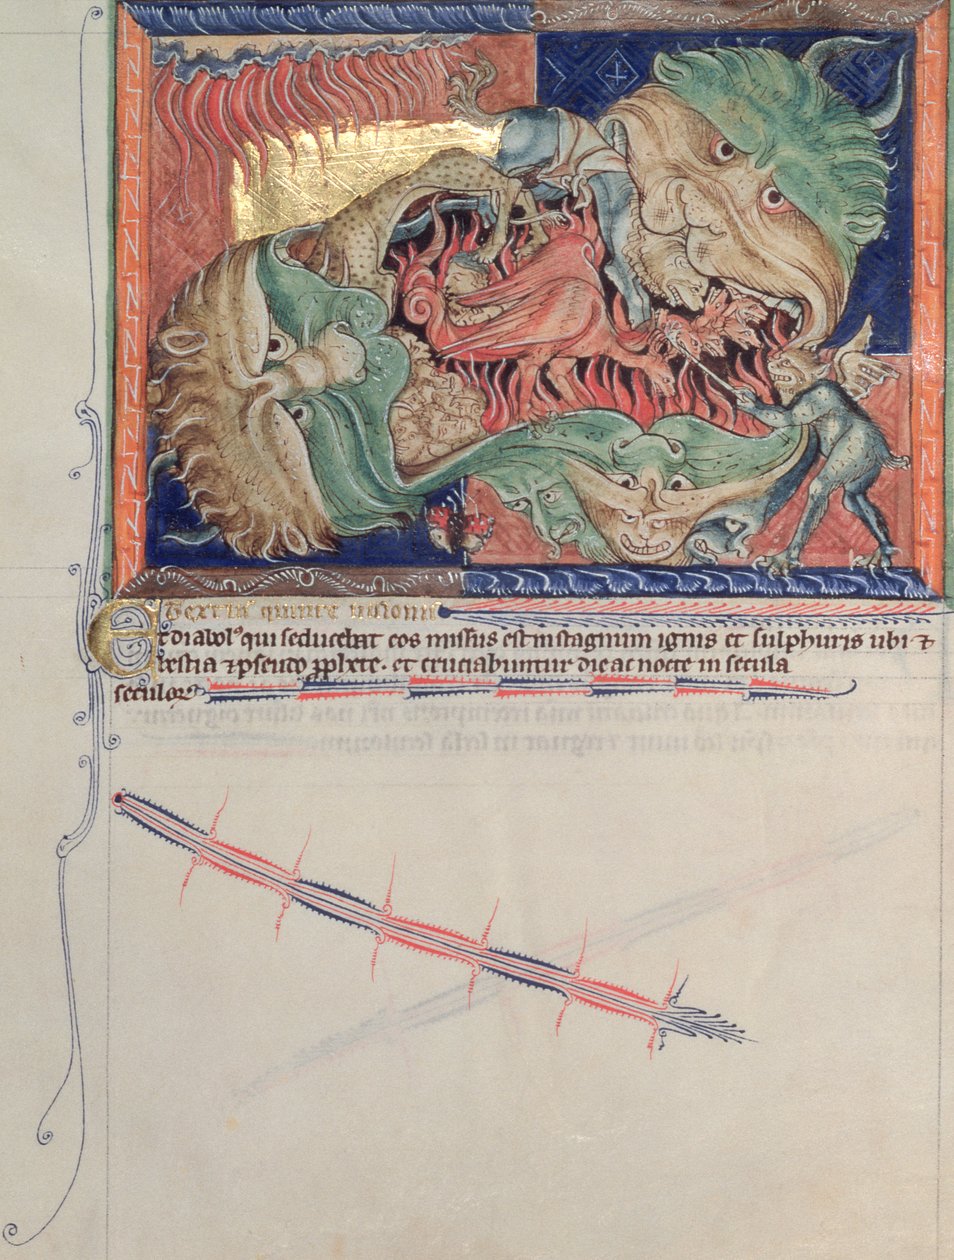 Textus quinte uisionis
Et diabolꝰ qui seducebat eos missus est in stagnum ignis et sulphuris ubi ⁊
bestia ⁊ pseudo ꝓphete. et cruciabuntur die ac nocte in secula
seculoꝝ